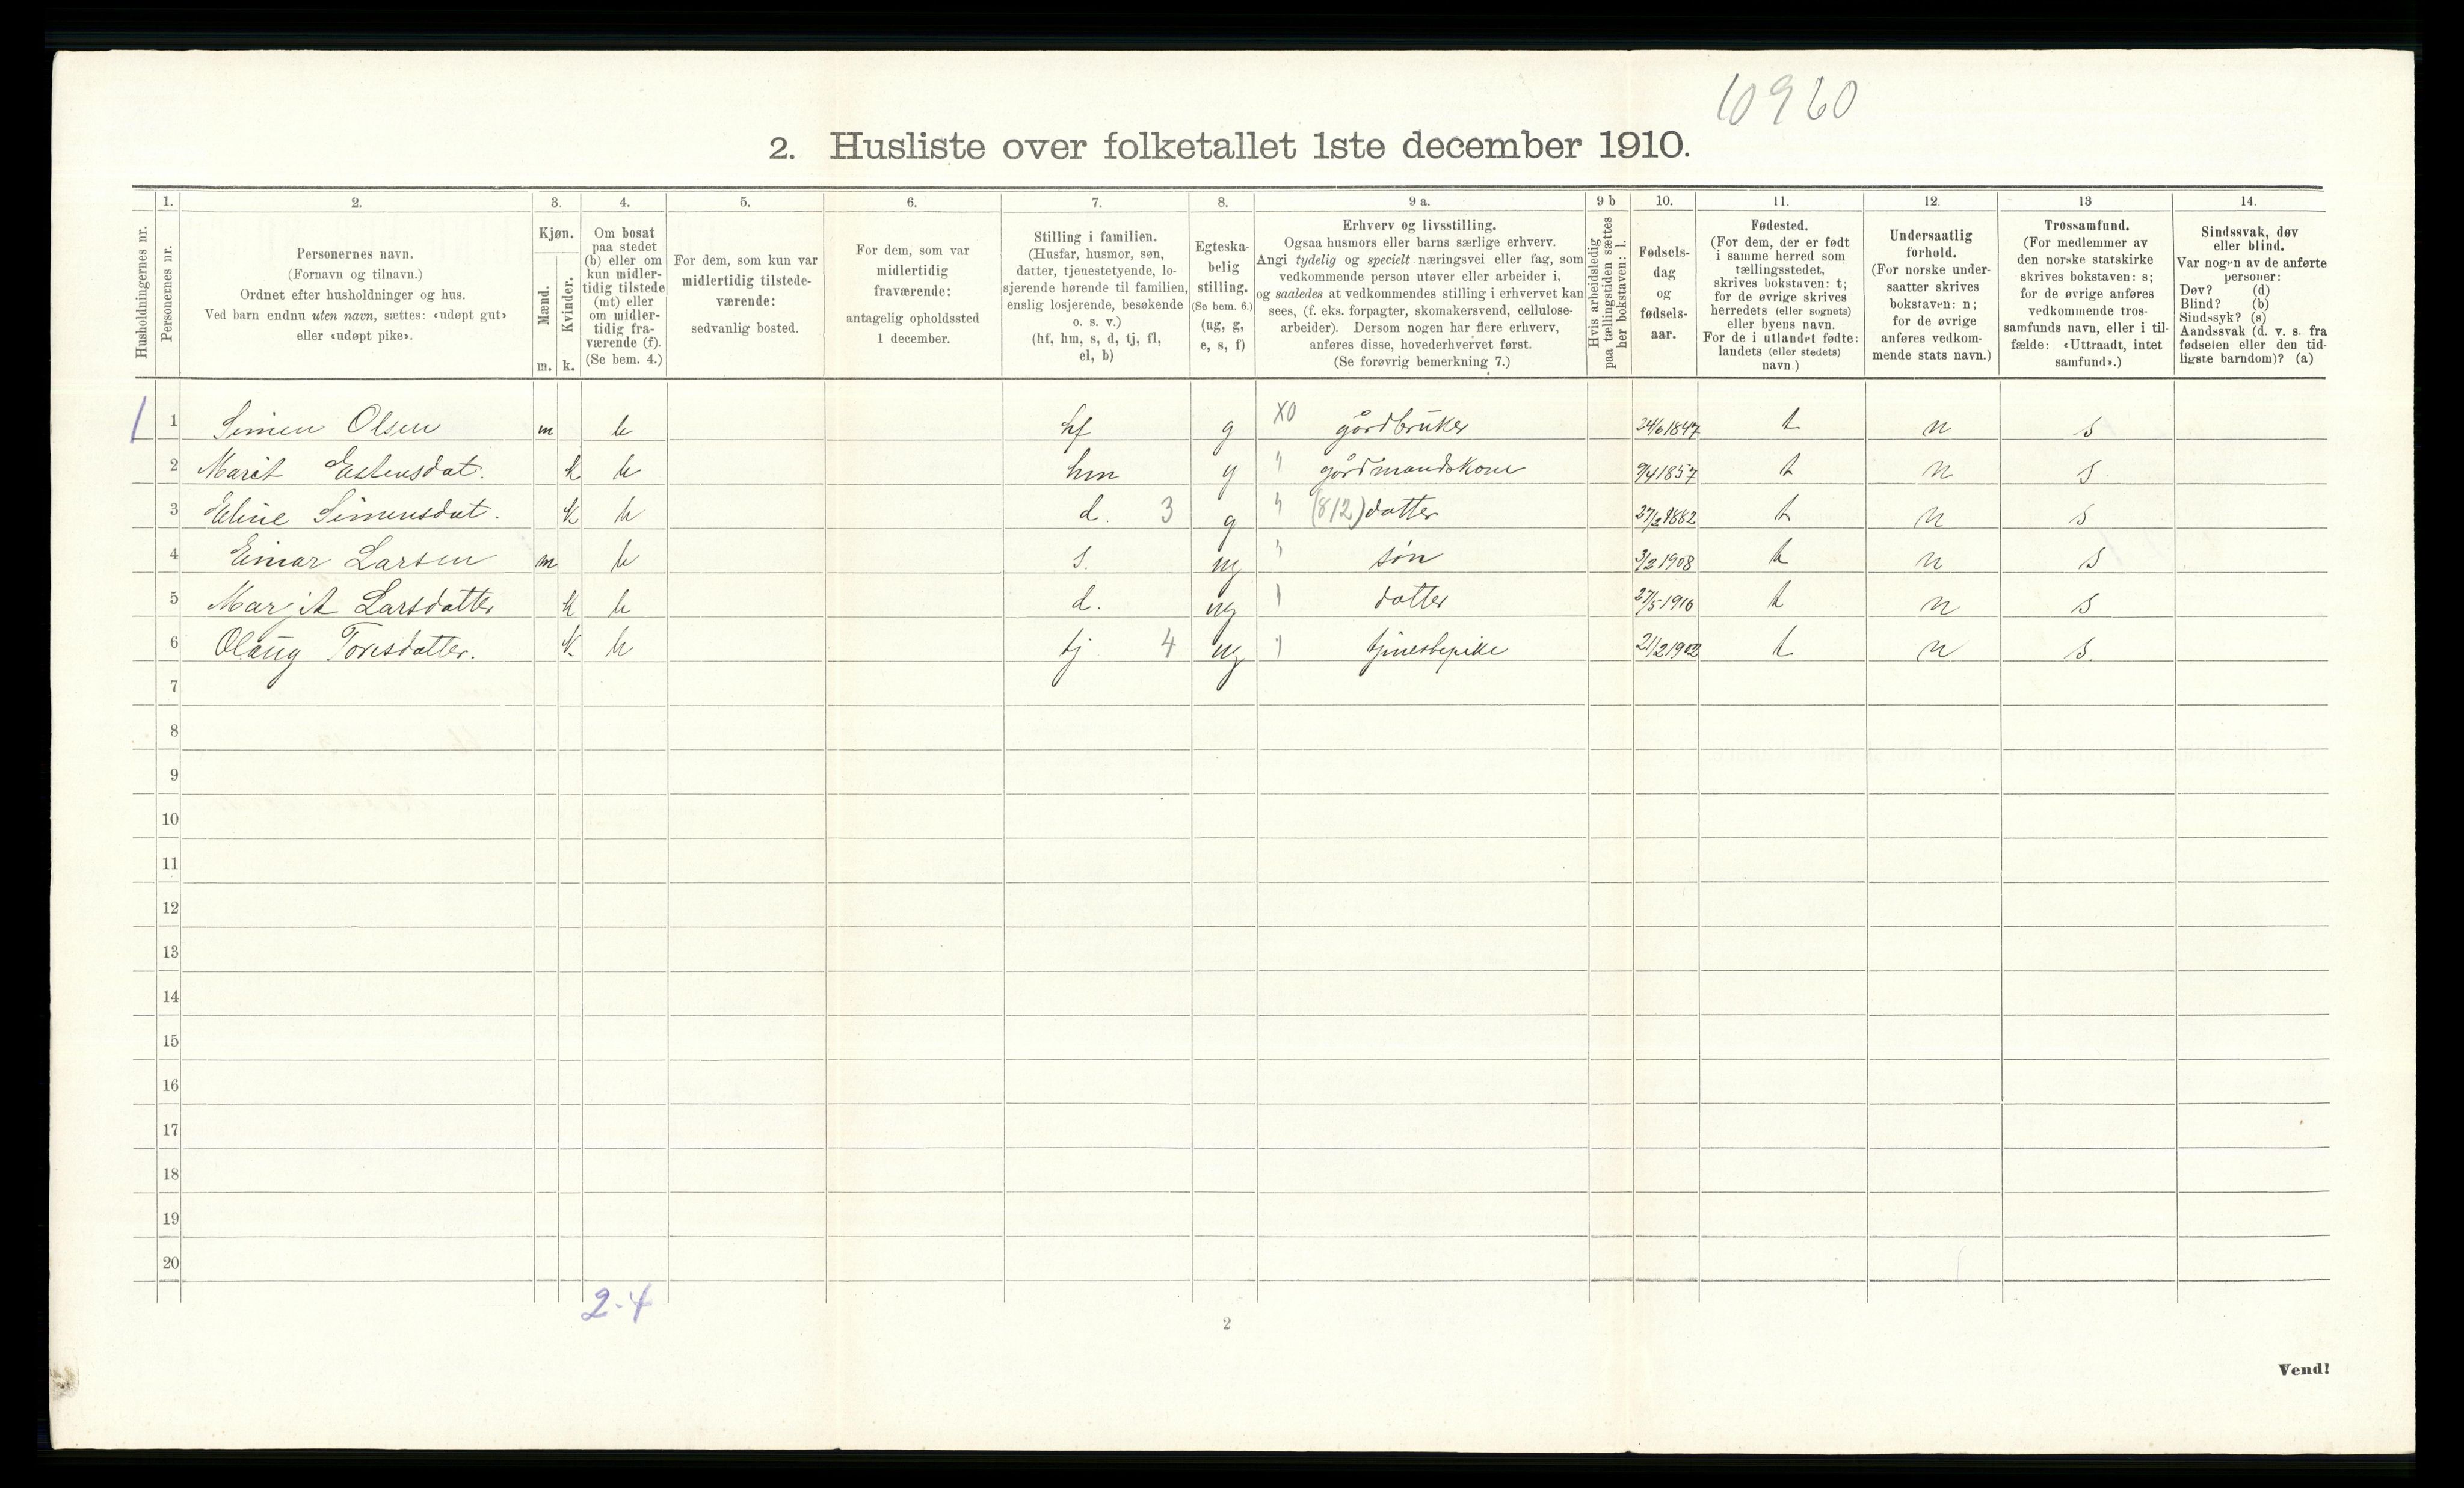 10960
2. Husliste over folketallet 1ste december 1910.
Husholdningernes nr.
1.
Personernes nr.
2.
Personernes navn.
(Fornavn og tilnavn.)
Ordnet efter husholdninger og hus.
Ved barn endnu uten navn, sættes: «udøpt gut»
eller «udøpt pike».
3.
Kjøn.
Mænd.
Kvinder.
m. k.
4.
Om bosat
paa stedet
(b) eller om
kun midler-
tidig tilstede
(mt) eller
om midler-
tidig fra-
værende (f).
(Se bem. 4.)
5.
For dem, som kun var
midlertidig tilstede-
værende:
sedvanlig bosted.
6.
For dem, som var
midlertidig
fraværende:
antagelig opholdssted
1 december.
7.
Stilling i familien.
(Husfar, husmor, søn,
datter, tjenestetyende, lo-
sjerende hørende til familien,
enslig losjerende, besøkende
o. s. v.)
(hf, hm, s, d, tj, fl,
el, b)
8.
Egteska-
belig
stilling.
(Se bem. 6.)
(ug, g,
e, s, f)
9 a.
Erhverv og livsstilling.
Ogsaa husmors eller barns særlige erhverv.
Angi tydelig og specielt næringsvei eller fag, som
vedkommende person utøver eller arbeider i,
og saaledes at vedkommendes stilling i erhvervet kan
sees, (f. eks. forpagter, skomakersvend, cellulose-
arbeider). Dersom nogen har flere erhverv,
anføres disse, hovederhvervet først.
(Se forøvrig bemerkning 7.)
9 b
Hvis arbeidsledig
paa tællingstiden sættes
her bokstaven: l.
10.
Fødsels-
dag
og
fødsels-
aar.
11.
Fødested.
(For dem, der er født
i samme herred som
tællingsstedet,
skrives bokstaven: t;
for de øvrige skrives
herredets (eller sognets)
eller byens navn.
For de i utlandet fødte:
landets (eller stedets)
navn.)
12.
Undersaatlig
forhold.
(For norske under-
saatter skrives
bokstaven: n;
for de øvrige
anføres vedkom-
mende stats navn.)
13
Trossamfund.
(For medlemmer av
den norske statskirke
skrives bokstaven: s;
for de øvrige anføres
vedkommende tros-
samfunds navn, eller i til-
fælde: «Uttraadt, intet
samfund».)
14.
Sindssvak, døv
eller blind.
Var nogen av de anførte
personer:
Døv? (d)
Blind? (b)
Sindssyk? (s)
Aandssvak (d. v. s. fra
fødselen eller den tid-
ligste barndom)? (a)
1 1 Simen Olsen m b hf g X0 gårdbruker 24/6 1847 t n s
2 Marit Estensdat. k b hm g " gårdmandskone 9/4 1857 t n s
3 Eline Simensdat. k b d. 3 g " (812) datter 27/2 1882 t n s
4 Einar Larsen m b s. ug " søn 3/2 1908 t n s
5 Marjit Larsdatter k b d. ug " datter 27/5 1910 t n s
6 Olaug Toresdatter. k b tj 4 ug " tjenestepike 21/2 1902 t n s.
7
8
9
10
11
12
13
14
15
16
17
18
19
20
2-4
2
Vend!